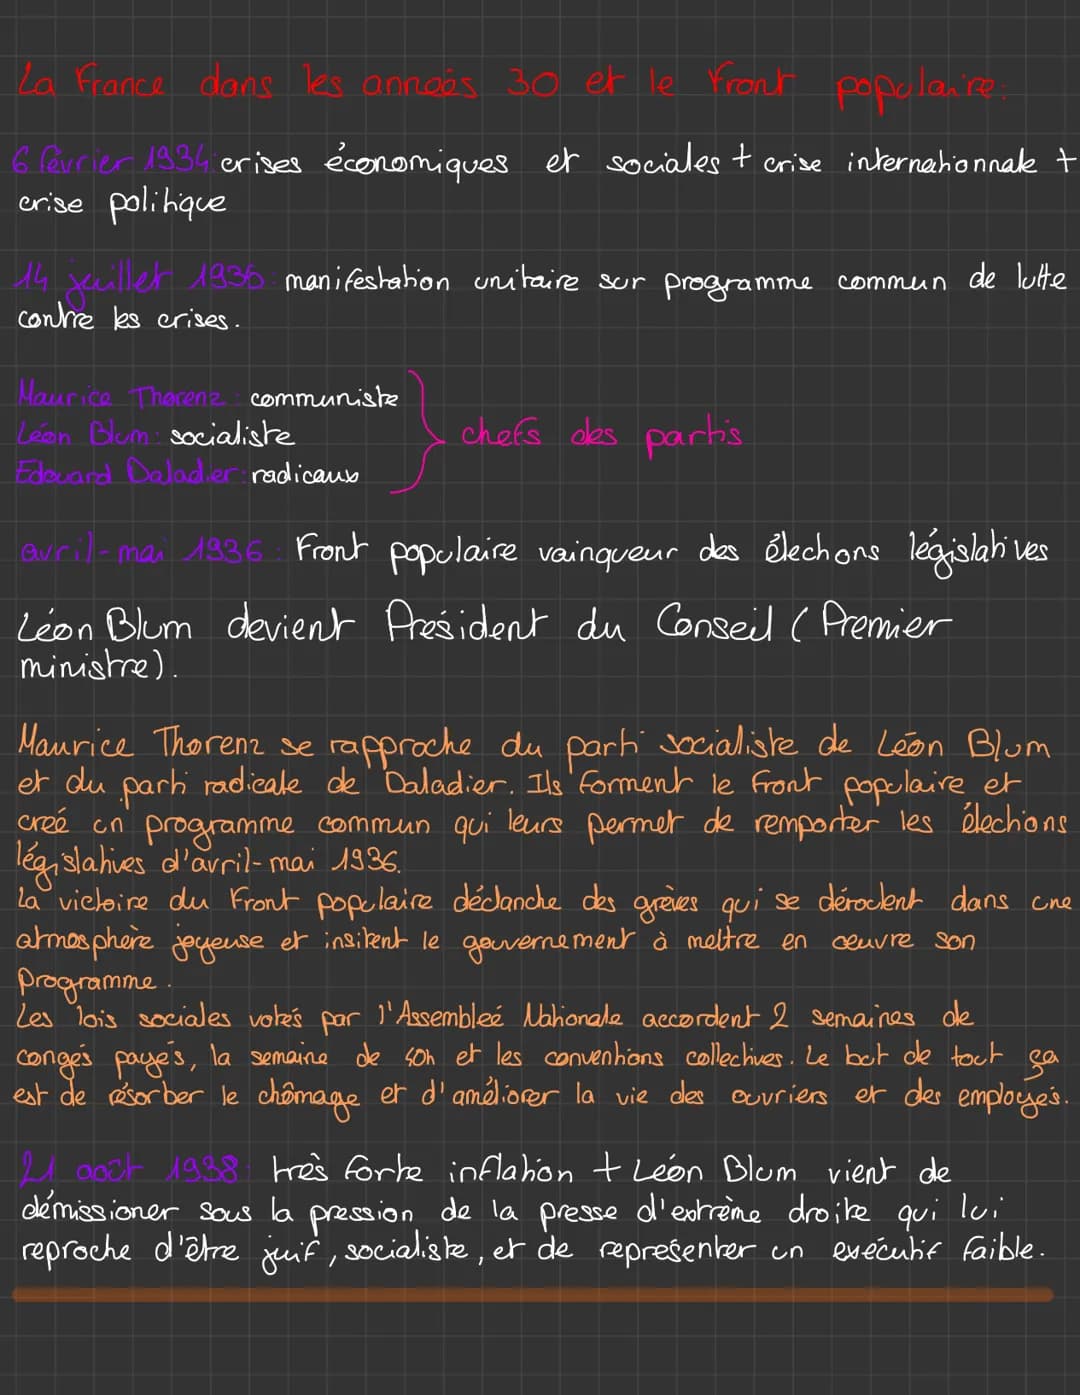 La France dans les anneés 30 et le Front populaire:
6 février 1934: crises économiques et sociales + crise internationnale +
crise politique
14 juillet 1936: manifestation unitaire sur programme commun de lutte
contre les crises.
Maurice Thorenz: communiste
Léon Blum: socialiste
Edouard Daladier: radicaux
chefs des partis
avril-mai 1936: Front populaire vainqueur des élections législatives
Léon Blum devient Président du Conseil (Premier
ministre).
Maurice Thorenz se rapproche du parti socialiste de Léon Blum
et du parti radicale de Daladier. Ils forment le Front populaire et
creé un programme commun qui leurs permet de remporter les élections
législatives d'avril-mai 1936.
La victoire du Front populaire déclanche des grèves qui se déroulent dans une
atmosphère joyeuse et insitent le gouvernement à mettre en œuvre son
Programme.
Les lois sociales votés par l'Assembleé Nationale accordent 2 semaines de
congés payés, la semaine de 40h et les conventions collectives. Le but de tout ça
est de résorber le chômage et d'améliorer la vie des ouvriers et des employés.
21 août 1938: très forte inflation + Léon Blum vient de
démissioner sous la pression de la presse d'extrème droite qui lui
reproche d'être juif, socialiste, et de représenter un exécutif faible.